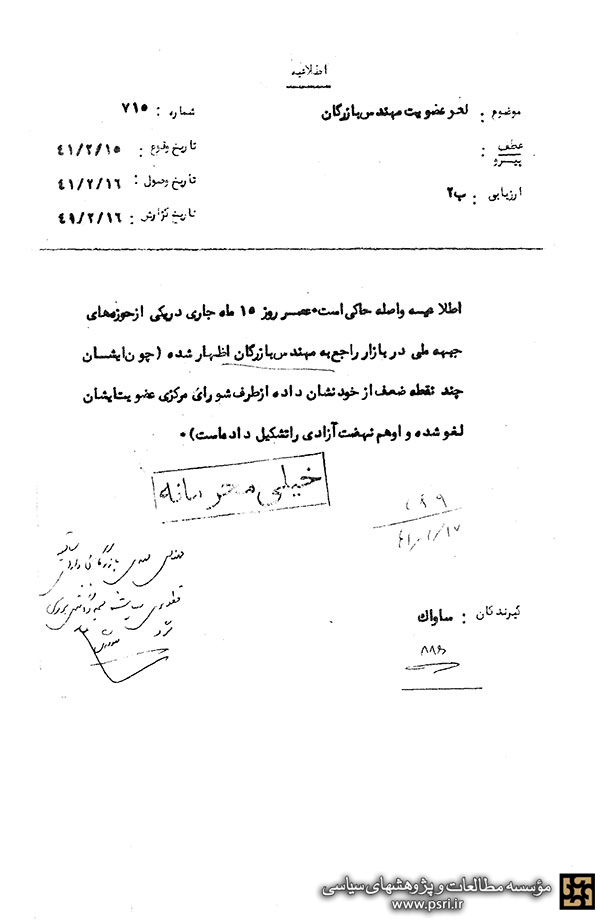 اطلاعیه
موضوع : لغو عضویت مهندس بازرگان
شماره : ۷۱۵
عطف
پیرو :
تاریخ وقوع : ۴۱/۲/۱۵
تاریخ وصول : ۴۱/۲/۱۶
ارزیابی : ب۲
تاریخ گزارش : ۴۱/۲/۱۶
اطلاعیه واصله حاکی است٠عصر روز ۱۵ ماه جاری در یکی از حوزه‌های
جبهه ملی در بازار راجع به مهندس بازرگان اظهار شده (چون ایشان
چند نقطه ضعف از خود نشان داده از طرف شورای مرکزی عضویت ایشان
لغو شده و او هم نهضت آزادی را تشکیل داده است) ٠
خیلی محرمانه
گیرندگان : ساواک
مهندس مهدی بازرگان دارای سابقه
مؤسسه مطالعات و پژوهشهای سیاسی
www.psri.ir